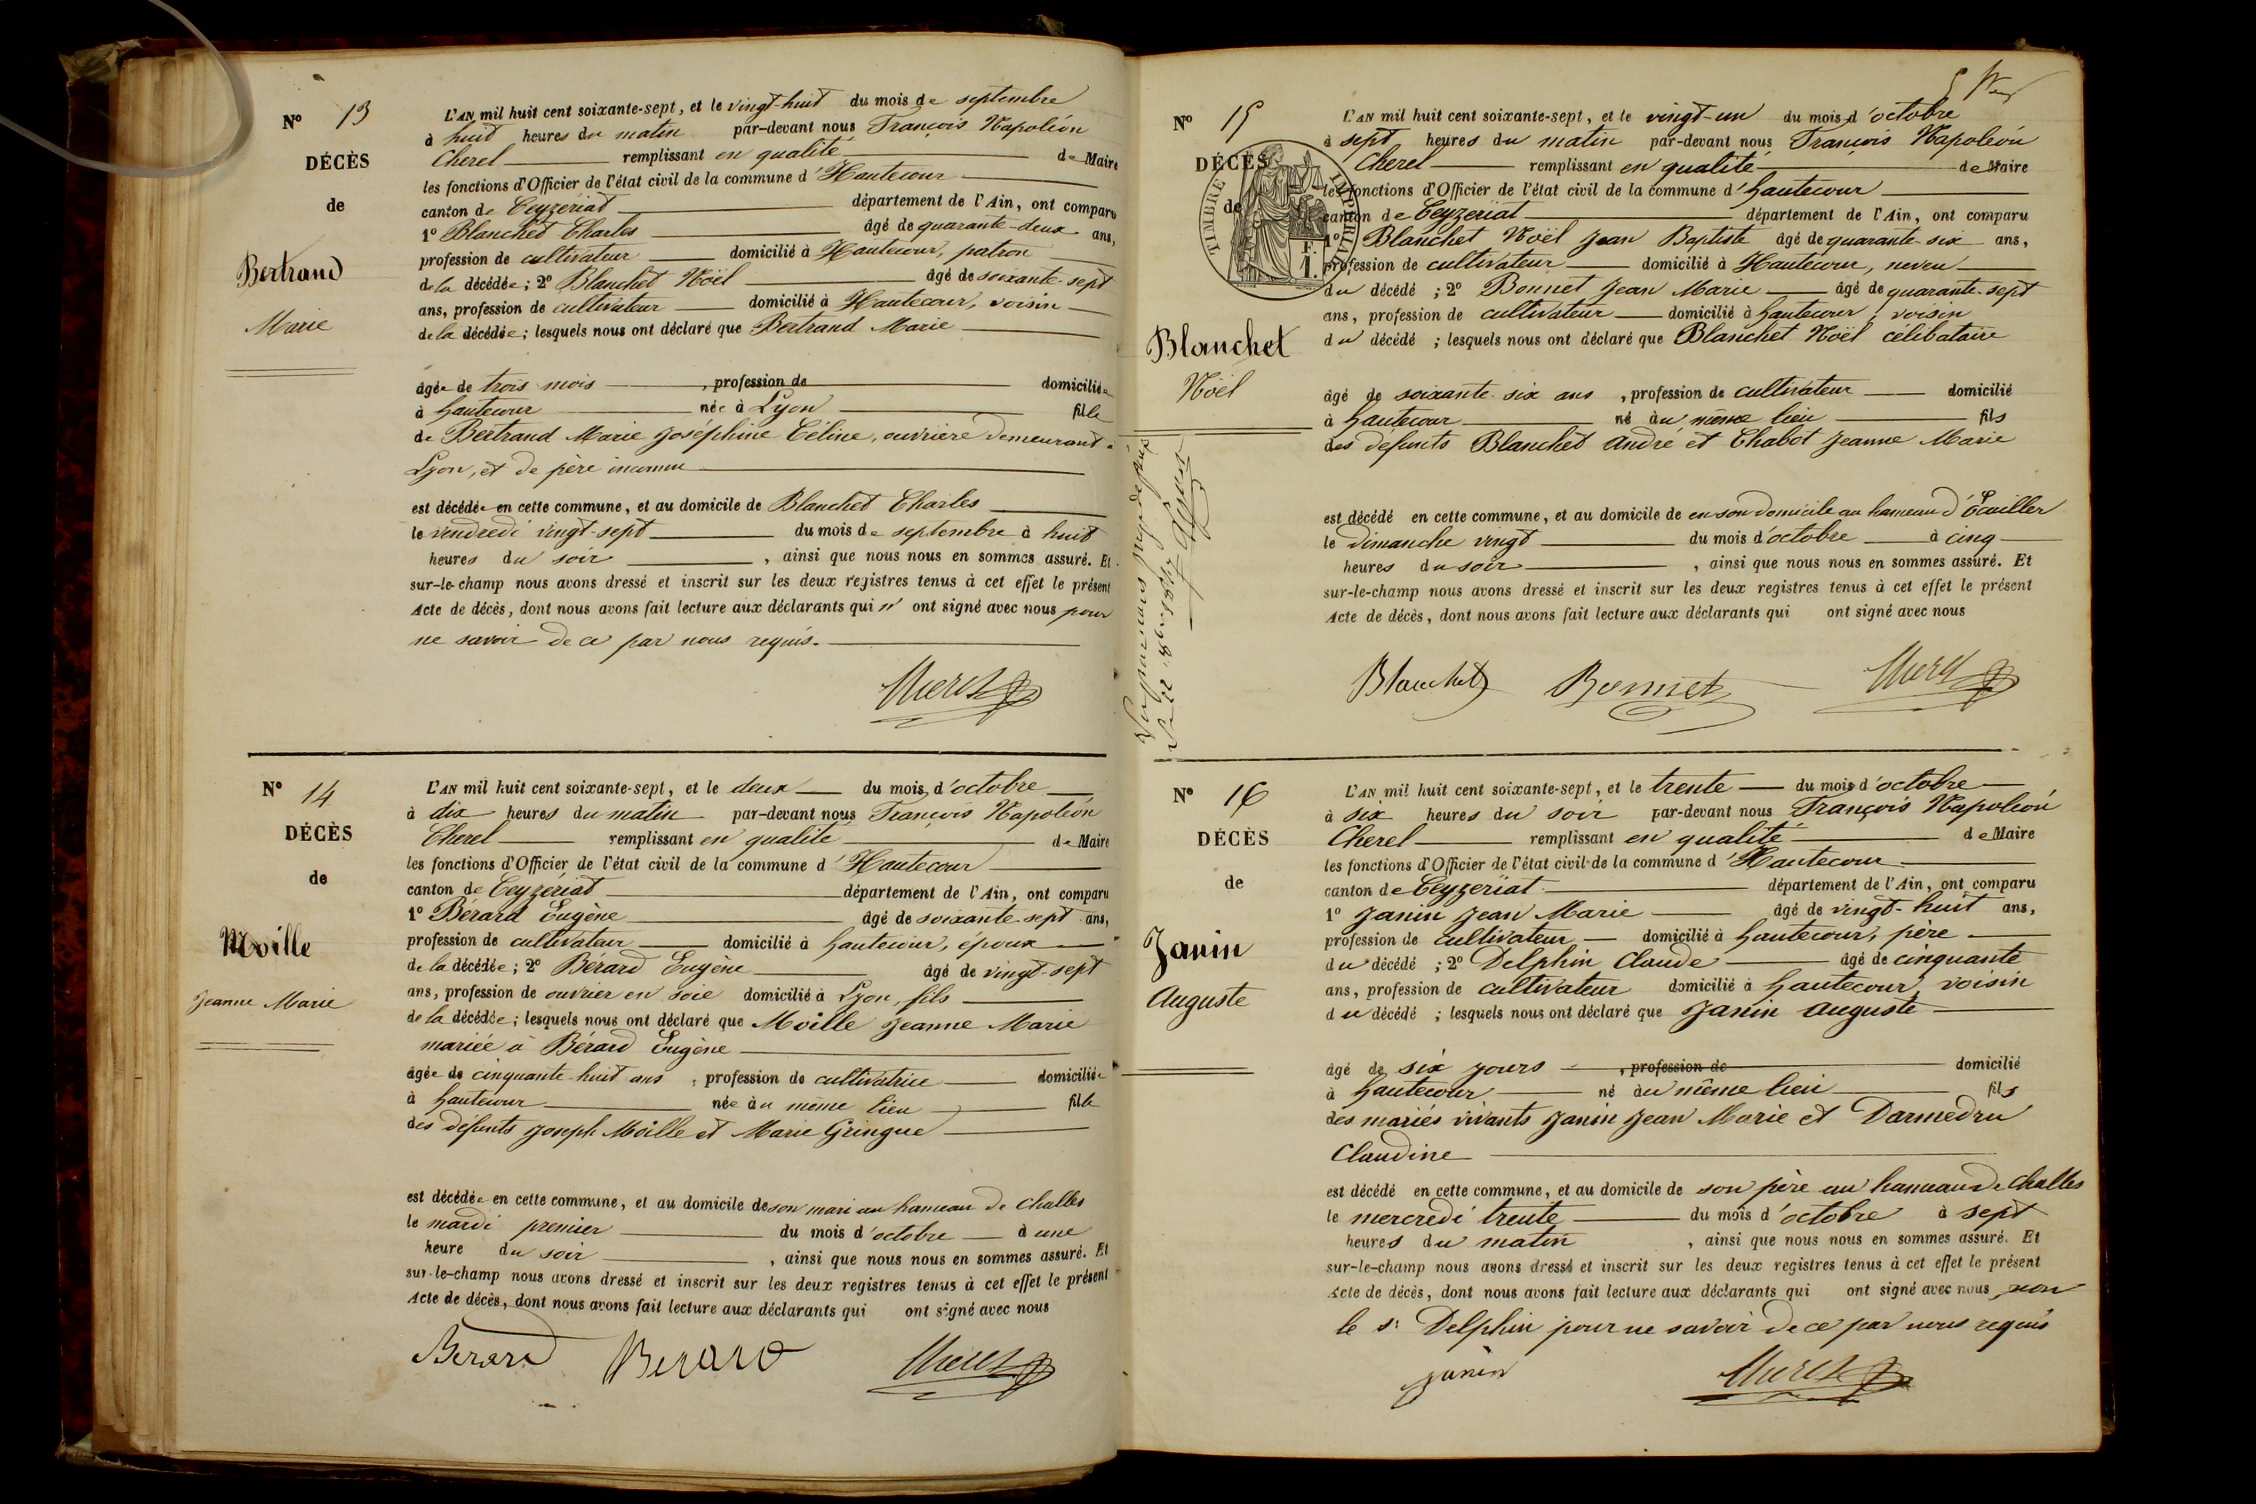 N° 13
DÉCÈS
de
Bertrand
Marie
L'AN mil huit cent soixante-sept, et le vingt-huit du mois de septembre
à huit heures du matin par-devant nous François Napoléon
Cherel remplissant en qualité de Maire
les fonctions d'Officier de l'état civil de la commune d'Hautecour
canton de Ceyzériat département de l'Ain, ont comparu
1° Blanchet Charles âgé de quarante-deux ans,
profession de cultivateur domicilié à Hautecour, patron
de la décédée; 2° Blanchet Noël âgé de soixante-sept
ans, profession de cultivateur domicilié à Hautecour, voisin
de la décédée; lesquels nous ont déclaré que Bertrand Marie
âgée de trois mois, profession de domiciliée
à hautecour née à Lyon fille
de Bertrand Marie Joséphine Céline, ouvrière demeurant à
Lyon, et de père inconnu
est décédée en cette commune, et au domicile de Blanchet Charles
le vendredi vingt-sept du mois de septembre à huit
heures du soir, ainsi que nous nous en sommes assuré. Et
sur-le-champ nous avons dressé et inscrit sur les deux registres tenus à cet effet le présent
Acte de décès, dont nous avons fait lecture aux déclarants qui n' ont signé avec nous pour
ne savoir de ce par nous requis.
N° 14
DÉCÈS
de
Moille
Jeanne Marie
L'AN mil huit cent soixante-sept, et le deux du mois d'octobre
à dix heures du matin par-devant nous François Napoléon
Cherel remplissant en qualité de Maire
les fonctions d'Officier de l'état civil de la commune d'Hautecour
canton de Ceyzériat département de l'Ain, ont comparu
1° Bérard Eugène âgé de soixante-sept ans,
profession de cultivateur domicilié à hautecour, époux
de la décédée; 2° Bérard Eugène âgé de vingt-sept
ans, profession de ouvrier en soie domicilié à Lyon, fils
de la décédée; lesquels nous ont déclaré que Moille Jeanne Marie
mariée à Bérard Eugène
âgée de cinquante-huit ans, profession de cultivatrice domiciliée
à hautecour née au même lieu fille
des défunts Joseph Moille et Marie Gringue
est décédée en cette commune, et au domicile de son mari au hameau de Challes
le mardi premier du mois d'octobre à une
heure du soir, ainsi que nous nous en sommes assuré. Et
sur-le-champ nous avons dressé et inscrit sur les deux registres tenus à cet effet le présent
Acte de décès, dont nous avons fait lecture aux déclarants qui ont signé avec nous
Berard Berard
N° 15
DÉCÈS
de
TIMBRE IMPERIAL
1 F.
Blanchet
Noël
L'AN mil huit cent soixante-sept, et le vingt-un du mois d'octobre
à sept heures du matin par-devant nous François Napoléon
Cherel remplissant en qualité de Maire
les fonctions d'Officier de l'état civil de la commune d'hautecour
canton de Ceyzeriat département de l'Ain, ont comparu
1° Blanchet Noël Jean Baptiste âgé de quarante-six ans,
profession de cultivateur domicilié à Hautecour, neveu
du décédé; 2° Bonnet Jean Marie âgé de quarante-sept
ans, profession de cultivateur domicilié à hautecour, voisin
du décédé; lesquels nous ont déclaré que Blanchet Noël célibataire
âgé de soixante-six ans, profession de cultivateur domicilié
à hautecour né au même lieu fils
des defunts Blanchet andré et Chabot Jeanne Marie
est décédé en cette commune, et au domicile de en son domicile au hameau d'Écailler
le dimanche vingt du mois d'octobre à cinq
heures du soir, ainsi que nous nous en sommes assuré. Et
sur-le-champ nous avons dressé et inscrit sur les deux registres tenus à cet effet le présent
Acte de décès, dont nous avons fait lecture aux déclarants qui ont signé avec nous
Blanchet Bonnet
N° 16
DÉCÈS
de
Janin
Auguste
L'AN mil huit cent soixante-sept, et le trente du mois d'octobre
à six heures du soir par-devant nous François Napoléon
Cherel remplissant en qualité de Maire
les fonctions d'Officier de l'état civil de la commune d'Hautecour
canton de Ceyzeriat département de l'Ain, ont comparu
1° Janin Jean Marie âgé de vingt-huit ans,
profession de cultivateur domicilié à hautecour, père
du décédé; 2° Delphin Claude âgé de cinquante
ans, profession de cultivateur domicilié à hautecour, voisin
du décédé; lesquels nous ont déclaré que Janin auguste
âgé de six jours, profession de domicilié
à hautecour né au même lieu fils
des mariés vivants Janin Jean Marie et Darmedru
Claudine
est décédé en cette commune, et au domicile de son père au hameau de Challes
le mercredi trente du mois d'octobre à sept
heures du matin, ainsi que nous nous en sommes assuré. Et
sur-le-champ nous avons dressé et inscrit sur les deux registres tenus à cet effet le présent
Acte de décès, dont nous avons fait lecture aux déclarants qui ont signé avec nous non
le sr Delphin pour ne savoir de ce par nous requis
Janin